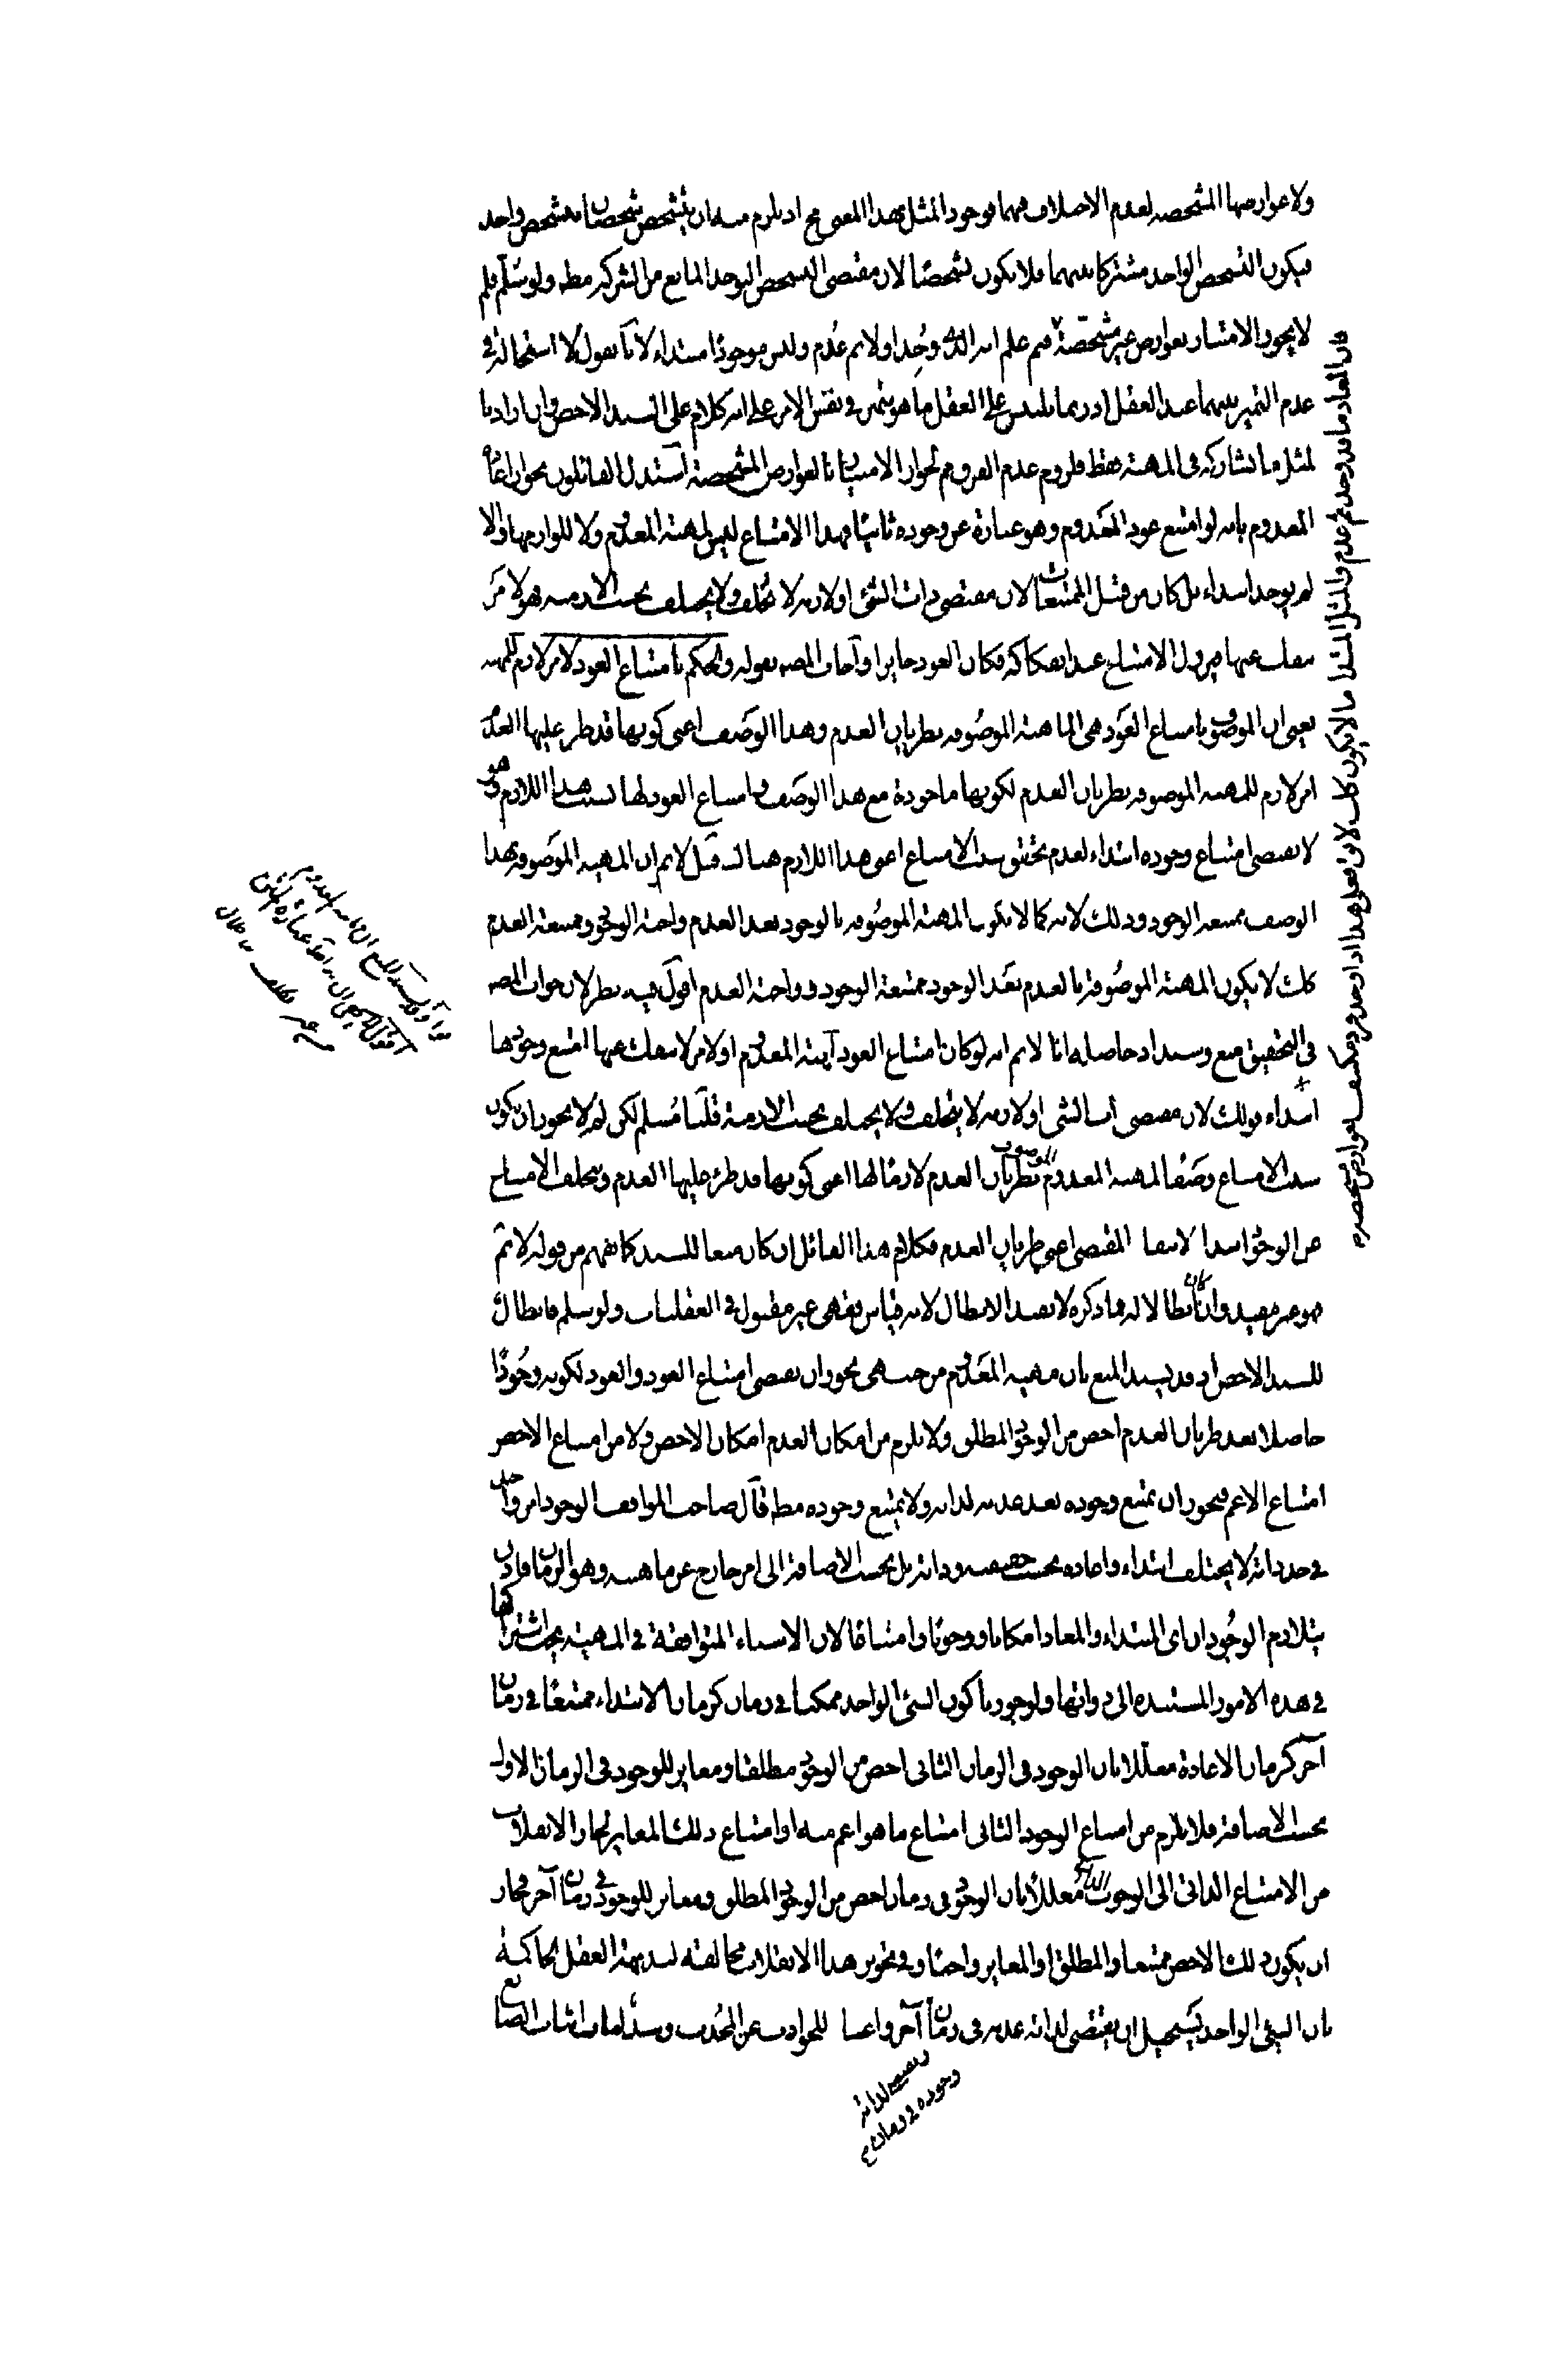 ولا عوارضها المشخصه لعدم الاختلاف فيهما فوجود المثل بهذا المعنى مح اذ يلزم منه ان يتشخص شخصان بتشخص واحد
فيكون التشخص الواحد مشتركا بينهما فلا يكون تشخصًا لان مقتضى التشخص التوحد المانع من الشركه مطه ولو سُلّم فلم
لا يجوز الامتياز بعوارض غير مشخصة فيم علم انه الذى وُجِد اولا ثم عُدِم وليس موجودًا مبتداء لانا نقول لا استحالة فى
عدم التميز بينهما عند العقل اذ ربما يلتبس على العقل ما هو متميز فى نفس الامر على انه كلام على السند الاخص وان اراد با
لمثل ما يشاركه فى المهية فقط فلزوم عدم الفرق مم لجواز الامتياز بالعوارض المشخصة استدل القائلون بجواز اعادة
المعدوم بانه لو امتنع عود المعدوم وهو عبارة عن وجوده ثانيًا فهذا الامتناع ليس لمهية المعدوم ولا للوازمها والا
لم يوجد ابتداء بل كان من قبيل الممتنعات لان مقتضى ذات الشئ او لازمه لا يتخلف ولا يختلف بحسب الازمنه فهو لامر
ينفك عنها فيزول الامتناع عند انفكاكه فكان العود جايزا واجاب المصه بقوله والحكم بامتناع العود لامر لازم للمهيه
يعنى ان الموصوف بامتناع العود هى الماهية الموصُوفه بطريان العدم وهذا الوصف اعنى كونها قد طرء عليها العدم
امر لازم للمهيه الموصوفه بطريان العدم لكونها ماخوذة مع هذا الوصف وامتناع العود لها بسبب هذا اللازم وهو
لا يقتضى امتناع وجوده ابتداء لعدم تحقق سبب الامتناع اعنى هذا اللازم هناك قيل لا نم ان المهيه الموصوفه بهذا
الوصف ممتنعه الوجود وذلك لانه كما لا يكون المهية الموصُوفه بالوجود بعد العدم واجبة الوجود وممتنعة العدم
كذلك لا يكون المهية الموصُوفة بالعدم بعد الوجود ممتنعة الوجود وواجبة العدم اقول فيه نظر لان جواب المصه
فى التحقيق منع وسند اذ حاصله انا لا نم انه لو كان امتناع العود لمهية المعدوم او لامر لا ينفك عنها امتنع وجودها
ابتداء قولك لان مقتضى ذات الشئ او لازمه لا يتخلف ولا يختلف بحسب الازمنة قلنا مُسلم لكن لم لا يجوز ان يكون
سبب الامتناع وصفًا لمهيه المعدوم الموصوف بطريان العدم لازمًا لها اعنى كونها قد طرء عليها العدم ويتخلف الامتناع
عن الوجود ابتدا لانتفا المقتضى اعنى طريان العدم فكلام هذا القائل ان كان منعا للسند كما يفهم من قوله لا نم
فهو غير مفيد وان كان ابطالا له فما ذكره لا يفيد الابطال لانه قياس فقهى غير مقبول فى العقليات ولو سلم فابطال
للسند الاخص اذ قد يسند المنع بان مهيه المعدوم من حيث هى يجوز ان يقتضى امتناع العود والعود لكونه وجُودًا
حاصلا بعد طريان العدم اخص من الوجود المطلق ولا يلزم من امكان العدم امكان الاخص ولا من امتناع الاخص
امتناع الاعم فيجوز ان يمتنع وجوده بعد عدمه لذاته ولا يمتنع وجوده مطه قال صاحب المواقف الوجود امر واحد
فى حد ذاته لا يختلف ابتداء واعاده بحسب حقيقته وذاته بل بحسب الاضافة الى امر خارج عن ماهيته وهو الزمان فاذن
يتلازم الوجُودان اى المبتداء والمعاد امكانا ووجوبًا وامتناعًا لان الاشياء المتوافقة فى المهية يجب اشتراكها
فى هذه الامور المستنده الى ذواتها ولو جوزنا كون الشئ الواحد ممكنا فى زمان كزمان الابتداء ممتنعًا فى زمان
آخر كزمان الاعادة معللا بان الوجود فى الزمان الثانى اخص من الوجود مطلقا ومغاير للوجود فى الزمان الاول
بحسب الاضافة فلا يلزم من امتناع الوجود الثانى امتناع ما هو اعم منه او امتناع ذلك المغاير لجاز الانقلاب
من الامتناع الذاتى الى الوجوب الذاتى معللًا بان الوجود فى زمان اخص من الوجود المطلق ومغاير للوجود فى زمان آخر فجاز
ان يكون ذلك الاخص ممتنعا والمطلق او المغاير واجبًا وفى تجويز هذا الانقلاب مخالفته لبديهة العقل الحاكمة
بان الشئ الواحد يستحيل ان يقتضى لذاته عدمه فى زمان آخر واغنا للحوادث عن المُحدث وسد لباب اثبات الصانع
ويقتضى لذاته
وجوده فى زمان
فان المعاد ما قد وجد ثم عدم والمثل المبتدا ما لا يكون كذلك لانا نقول هذا اذا وجد فرد مكتنف بعوارض مشخصه